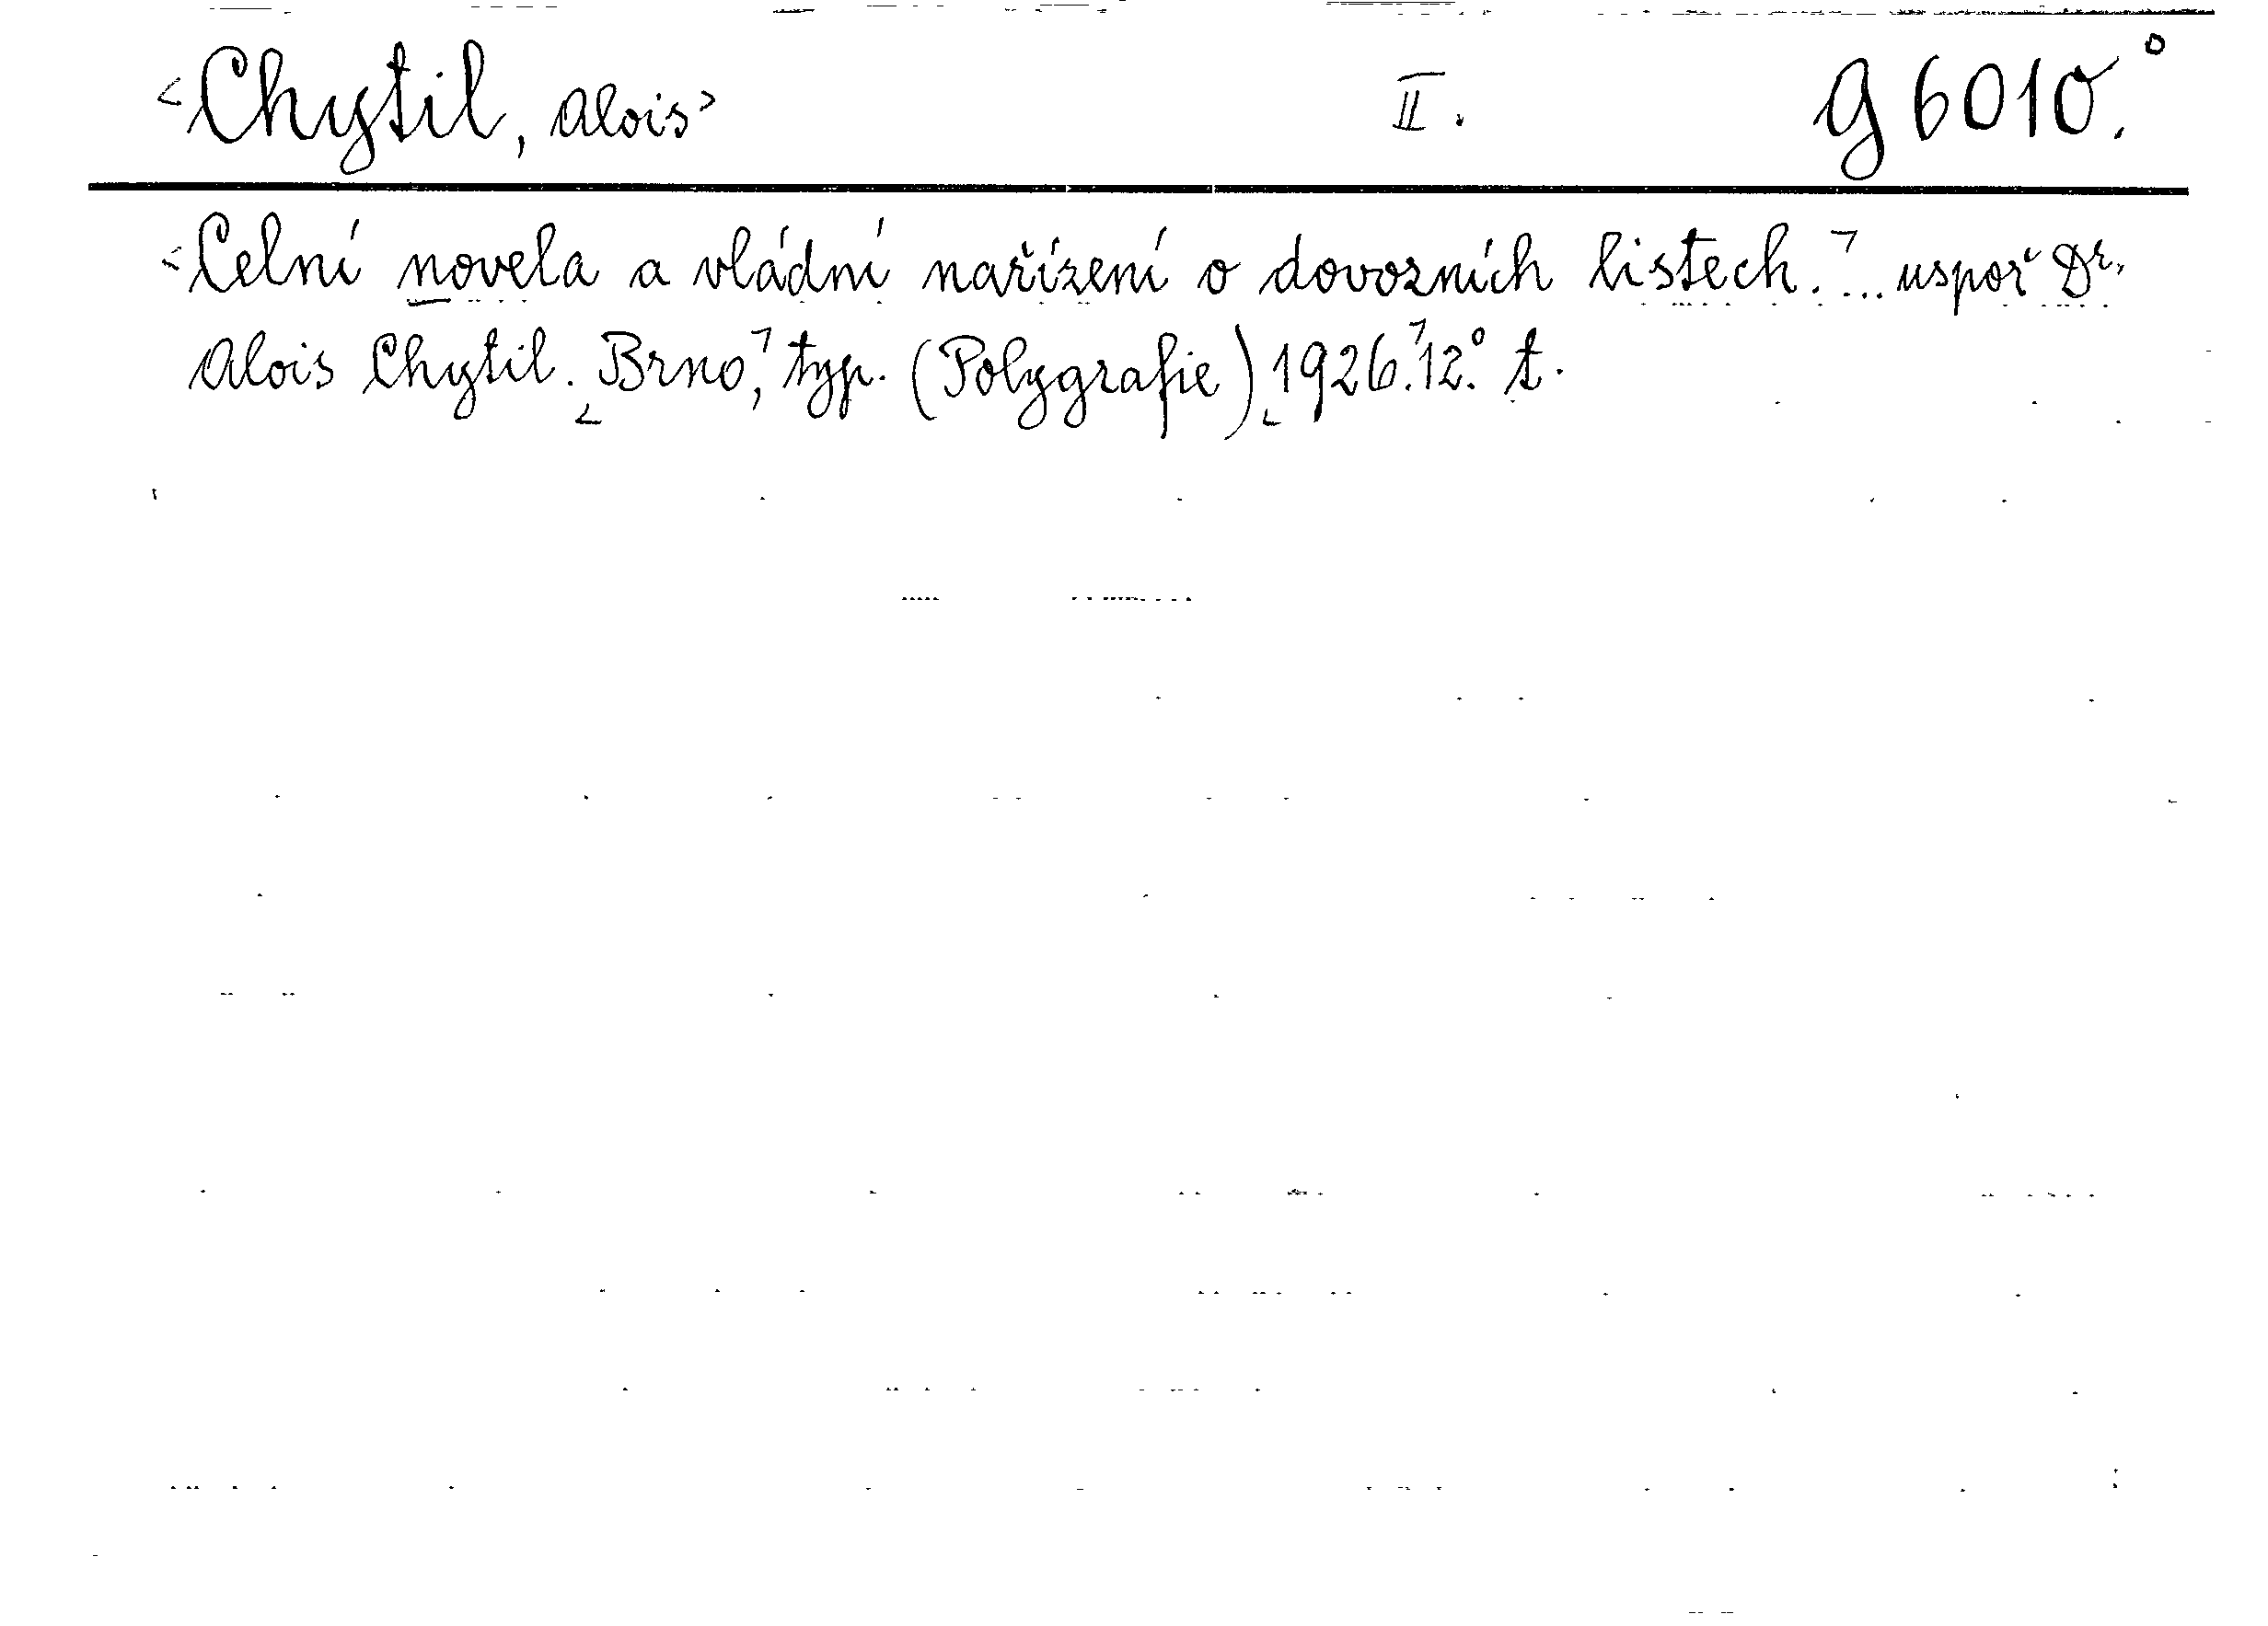 <Chytil, Alois> II. g 6010.°
<Celní novela a vládní nařízení o dovozních listech.> ... uspoř Dr.
Alois Chytil. <Brno,> typ. (Polygrafie) <1926.> 12.° t.